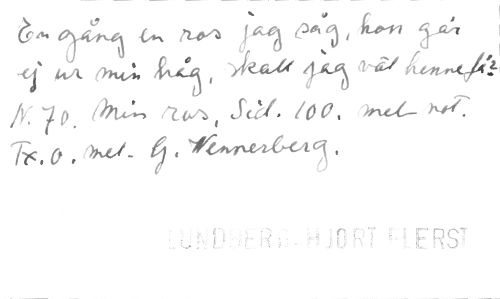 En gång en ros jag såg, hon går
ej ur min håg, skall jag väl henne få?
N. 70. Min ros, Sid. 100. mel. not.
Tx. o. mel. G. Wennerberg.
LUNDBERG-HJORT FLERST